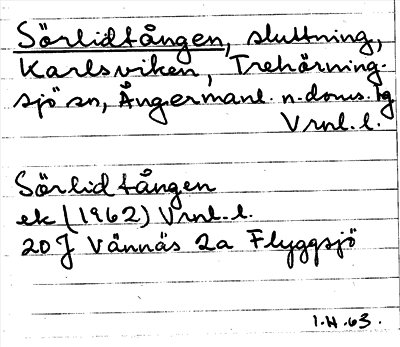 Sörlidtången, sluttning,
Karlsviken, Trehörning-
sjö sn, Ångermanl. n. doms. tg
Vrnl. l.
Sörlidtången
ek (1962) Vrnl. l.
20J Vännäs 2a Flyggsjö
1.H.63.